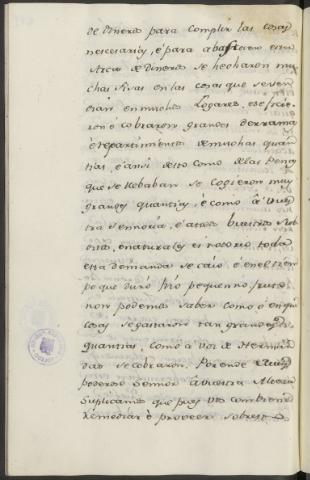 de dineros para complir las cosas
necesarias, é para abastecer esta
Arca de dineros se hecharon mu
chas sisas en las cosas que se ven
dian en muchos Logares, ese ficie
ron é cobraron grandes derramas
é repartimientos de muchas quan
tias, é ansi desto como de las Penas
que se llebaban se cogieron muy
grandes quantias, é como á Vues
tra Sennoria, é atodos buestros Sub
ditos, e naturales es notorio, toda
esta demanda se caió é en el tiem
po que duró fizo pequenno fruto
non podemos saber como ó en qué
cosas se gastaron tan grandes
quantias, como á voz de Herman
dad se cobraron. Porende
poderoso Sennor á Vuestra Alteza
Suplicamos que pues
remediar é proveer sobre